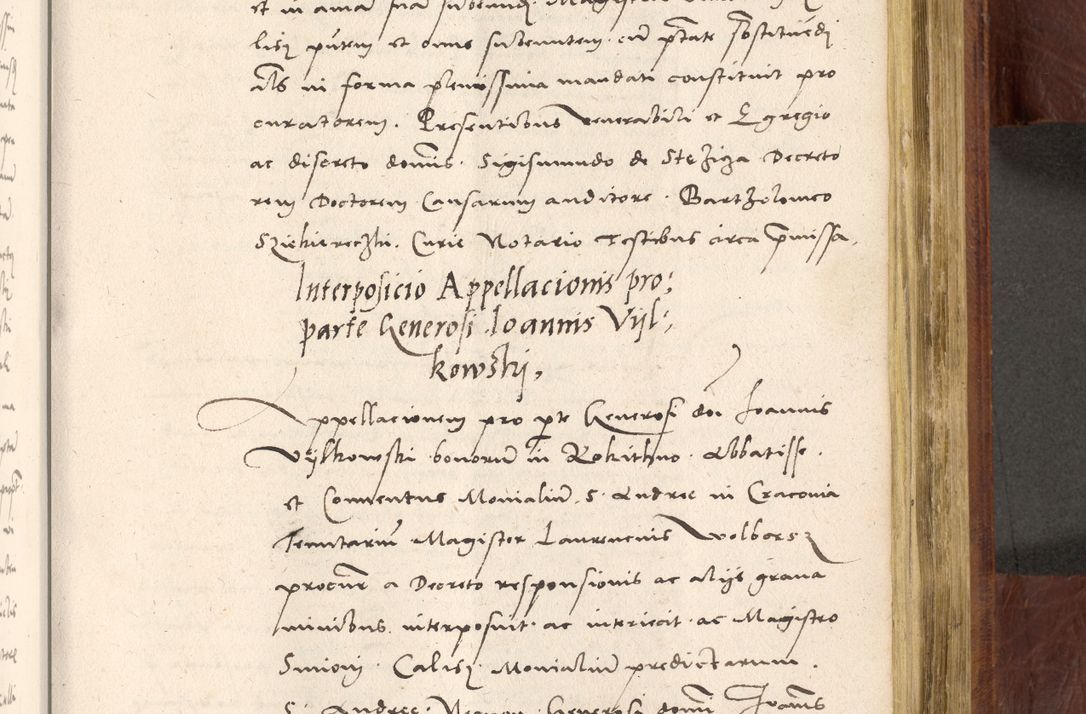 et in
lisz pntem et onus subeuntem cu ptate sbstituedi
als in forma plenissima mandati constituit pro
curatorem. Presentibus venerabili et Egregio
ac discreto domis. Sigismundo de Stezicza Decreto
rem Doctorem Causarum auditore. Bartholomeo
Curie Notario Testibus circa pmissa,
Interposicio Appellacionis pro:
parte Generosi Ioannis Vijl:
kowskij,
Appellacionem pro pte Generosi doi Joannis
Vijlkowski bonoru in Rokithno Abbatisse.
et Conuentus Monialiu. S. Andree in Cracouia
Tenutariu Magister Laurencius Wolborsz
procur a Decreto responsionis ac alijs graua
minibus interposuit ac interiecit. ac Magistro
Simoni. Calisz Monialium predictarum.
S. Andree Generosi domi Joanis